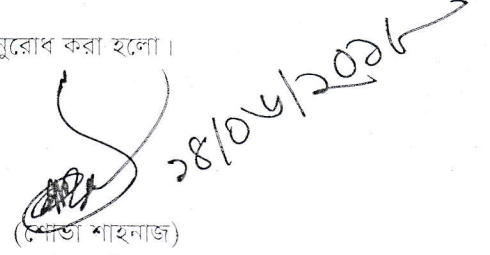 নুরোধ করা হলো।
১৪/০৬/২০১৮
(শোভা শাহনাজ)